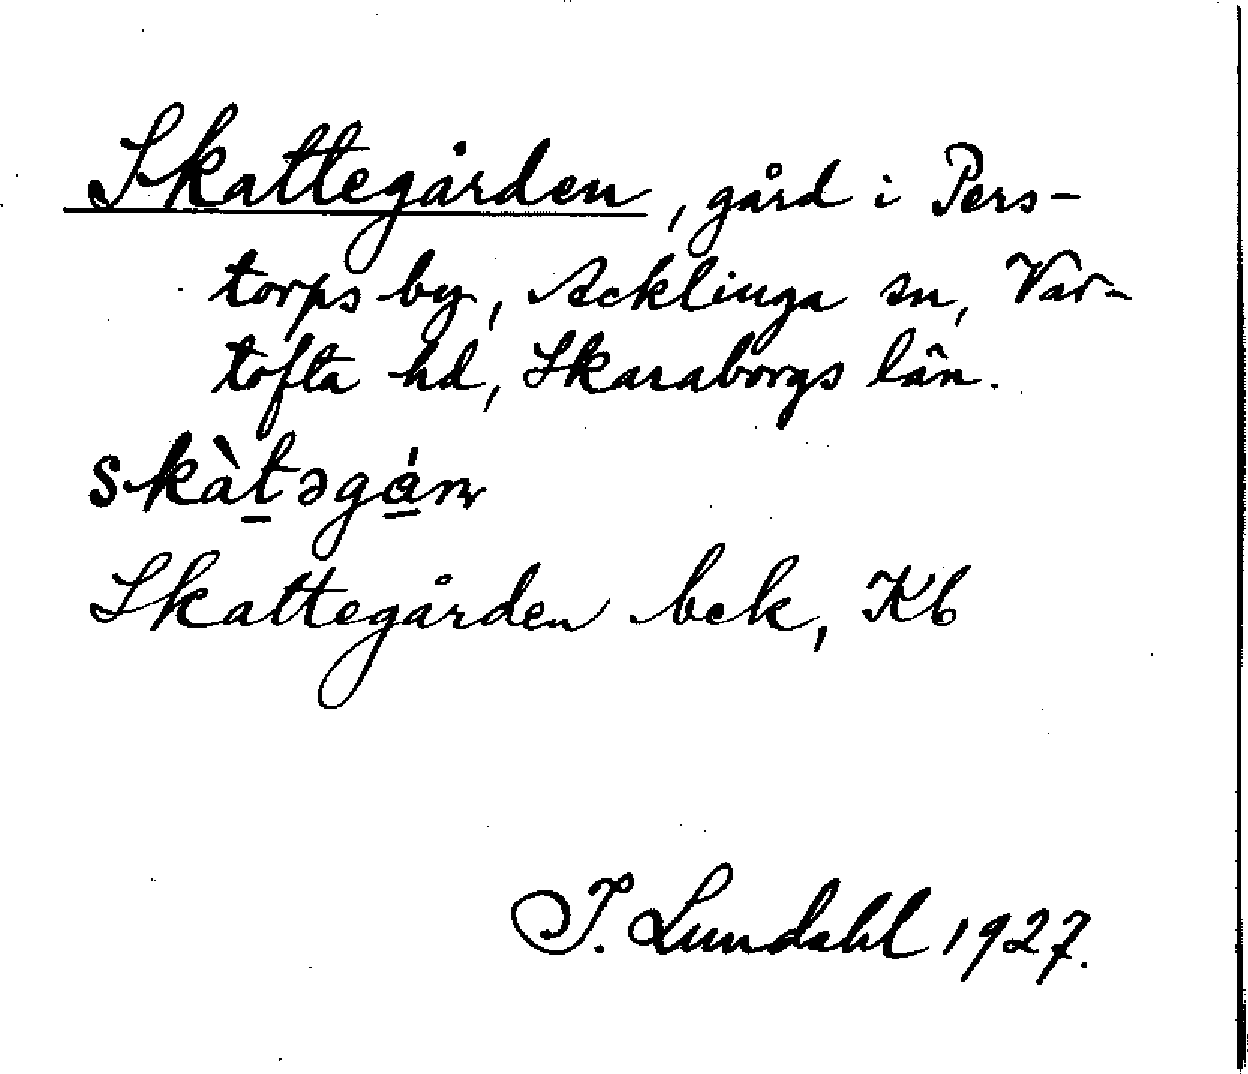 Skattegården, gård i Pers-
torps by, Acklinga sn, Var-
tofta hd, Skaraborgs län.
skàt̠əgá̠n
Skattegården bek, Kb
I. Lundahl 1927.